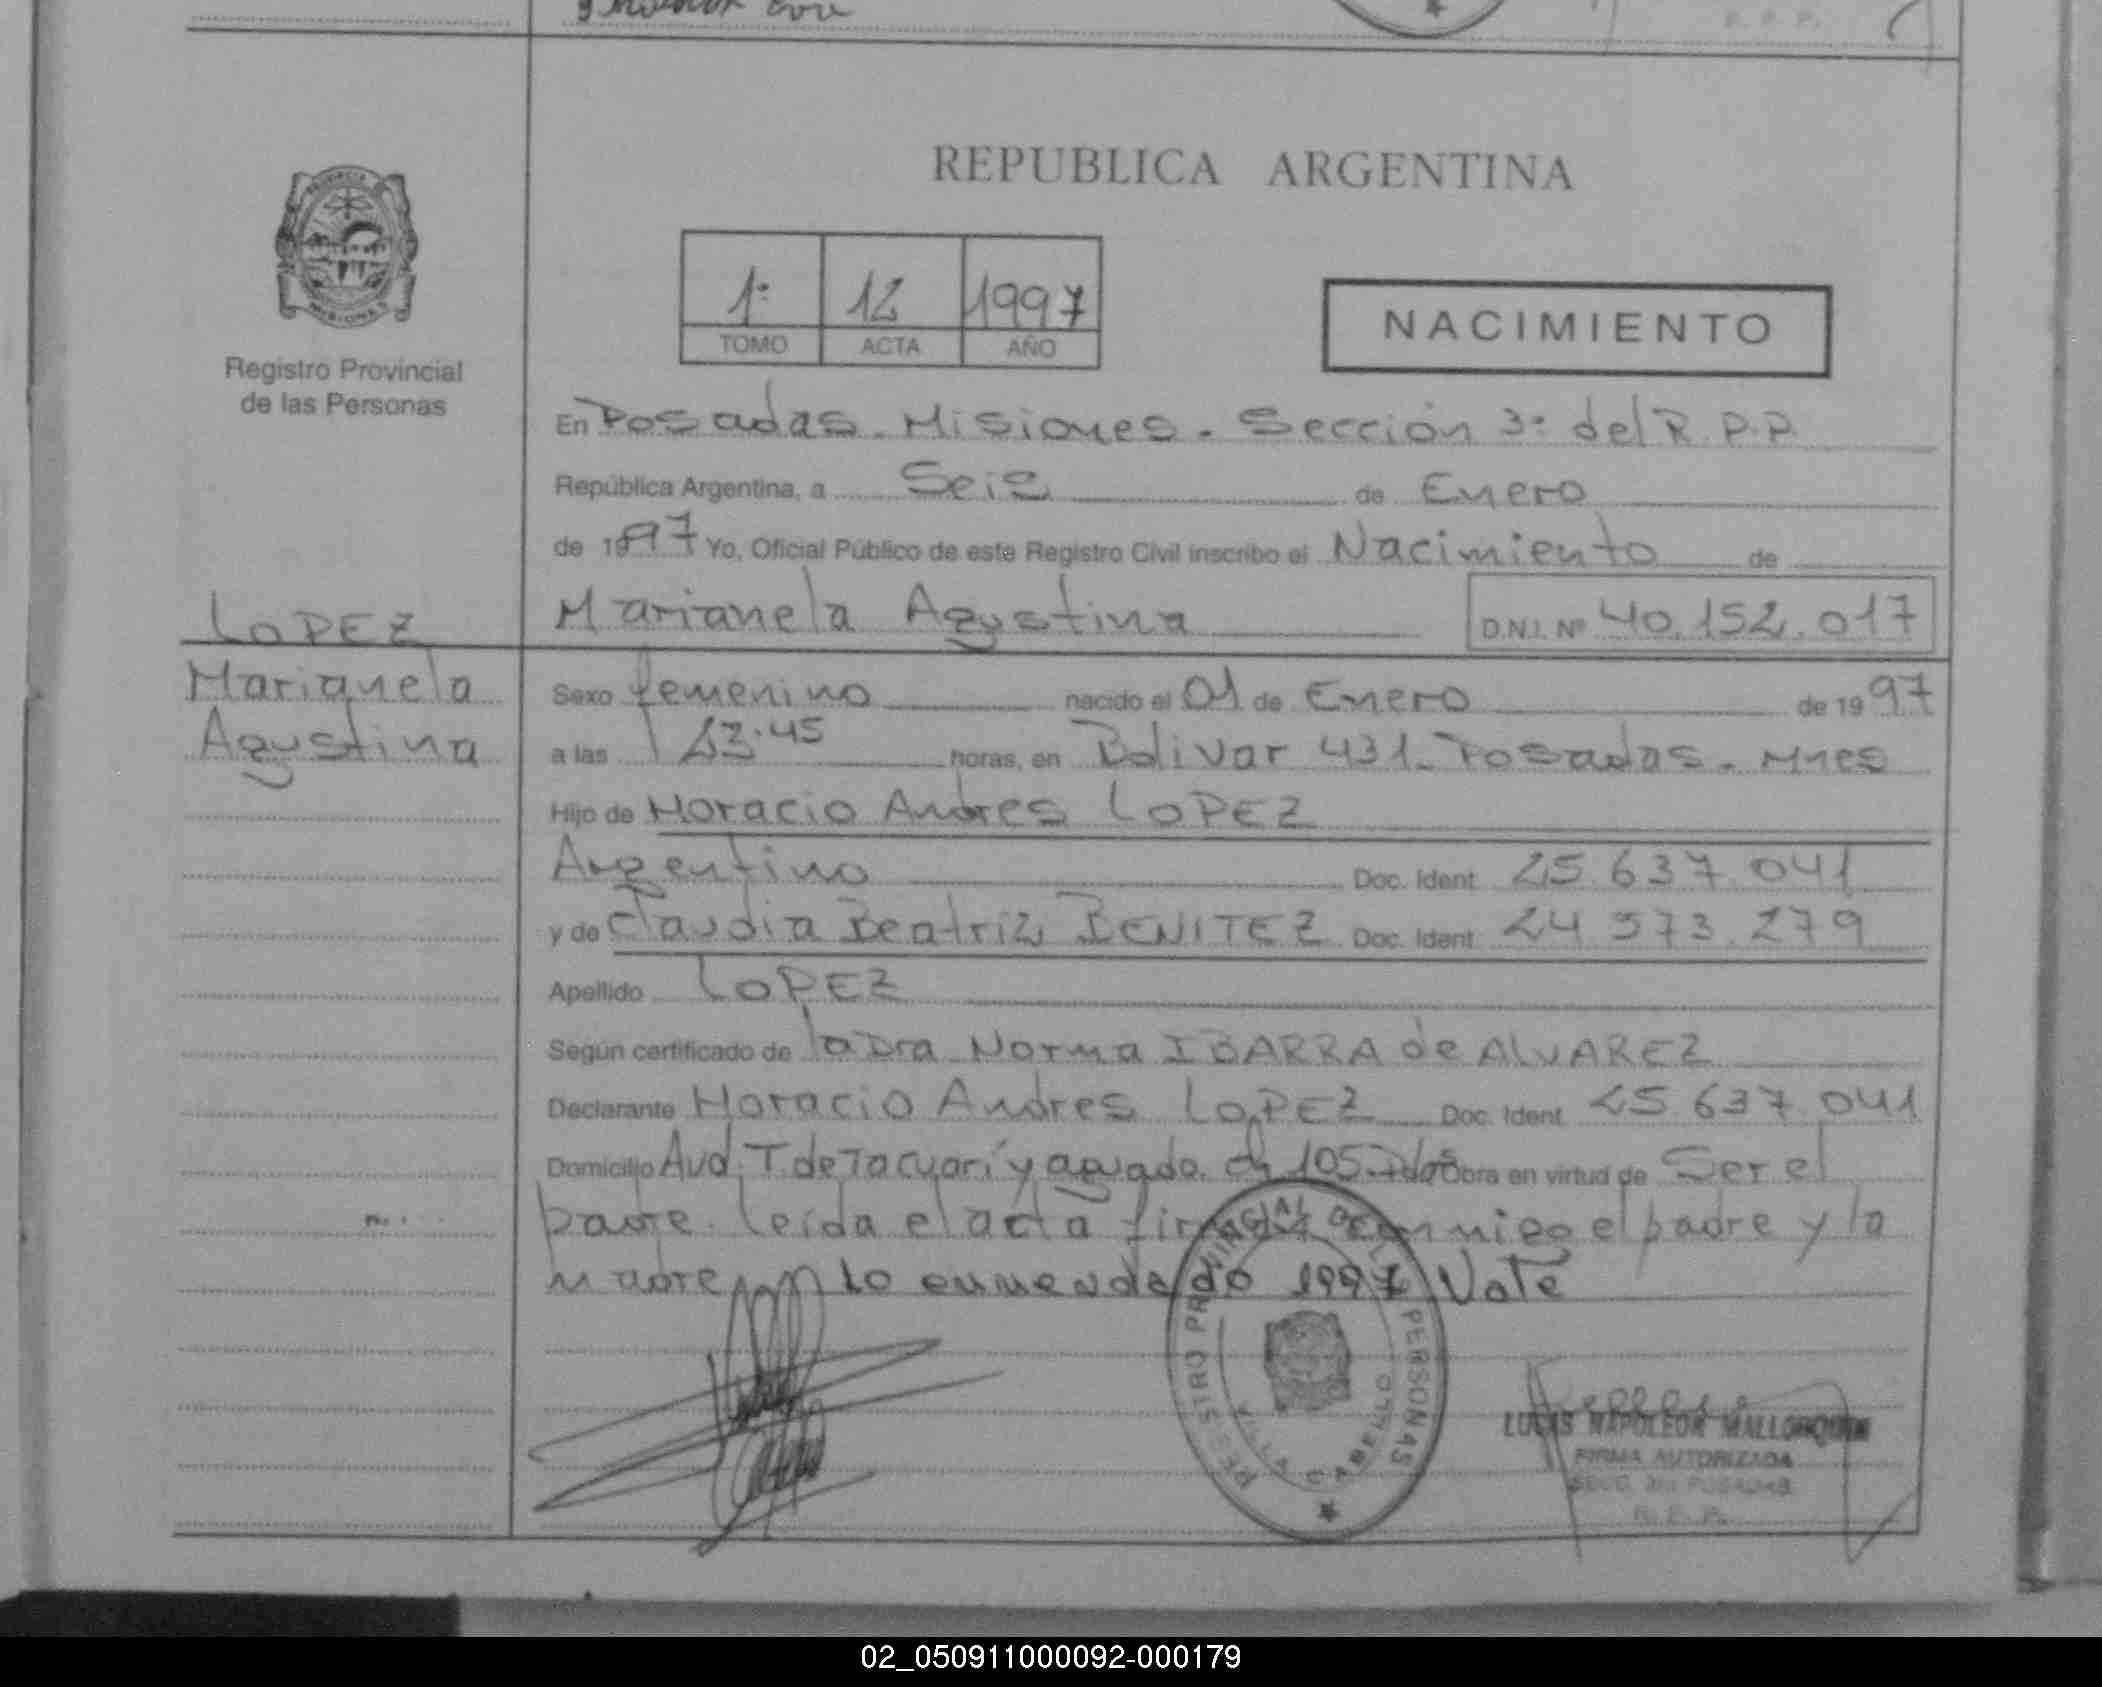 REPUBLICA ARGENTINA
PROVINCIA
MISIONES
Registro Provincial
de las Personas
1º 12 1997
TOMO ACTA AÑO
NACIMIENTO
En Posadas - Misiones. Sección 3ª del R.P.P.
República Argentina, a Seis de Enero
de 1997 Yo, Oficial Público de este Registro Civil inscribo el Nacimiento de
LOPEZ
Marianela Agustina D.N.I. Nº 40.152.017
Marianela
Agustina
Sexo femenino nacido el 01 de Enero de 1997
a las 23.45 horas, en Bolivar 431. Posadas - Mnes
Hijo de Horacio Andres LOPEZ
Argentino Doc. Ident. 25.637.041
y de Claudia Beatriz BENITEZ Doc. Ident. 24.573.279
Apellido LOPEZ
Según certificado de la Dra Norma IBARRA de ALVAREZ
Declarante Horacio Andres LOPEZ Doc. Ident. 25.637.041
Domicilio Avd. T. de Tacuarí y ch 105 Pdas Obra en virtud de Ser el
padre. Leída el acta firman conmigo el padre y la
madre lo enmendado 1997 Vale
REGISTRO PROVINCIAL DE LAS PERSONAS
VILLA CABELLO
LUCAS NAPOLEON MALLORQUIN
FIRMA AUTORIZADA
SECC. 3ra POSADAS
R. P. P.
02_050911000092-000179